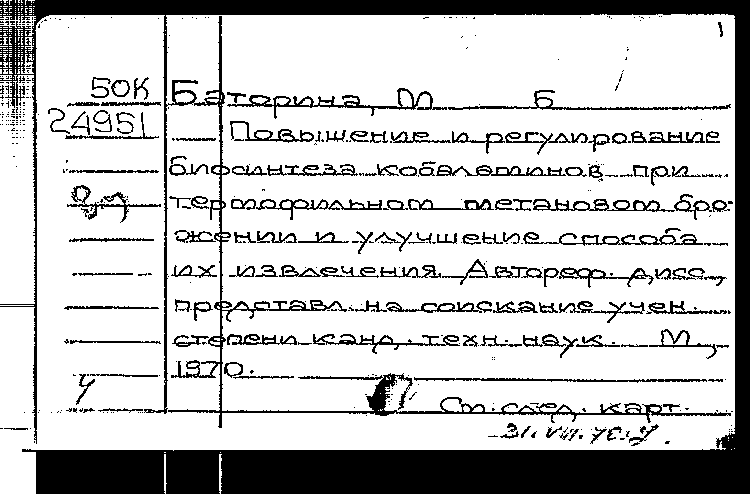 1
50К Баторина, М Б
24951 Повышение и регулирование
биосинтеза кобаламинов при
термофильном метановом бро-
жении и улучшение способа
их извлечения Автореф. дисс.,
представл. на соискание учен.
степени канд. техн. наук. М.,
1970.
См. след. карт.
31.VIII.70